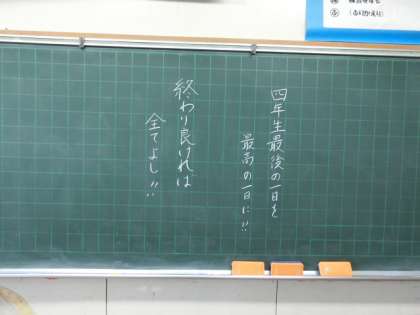 四年生最後の一日を
最高の一日に!!
終わり良ければ
全てよし!!